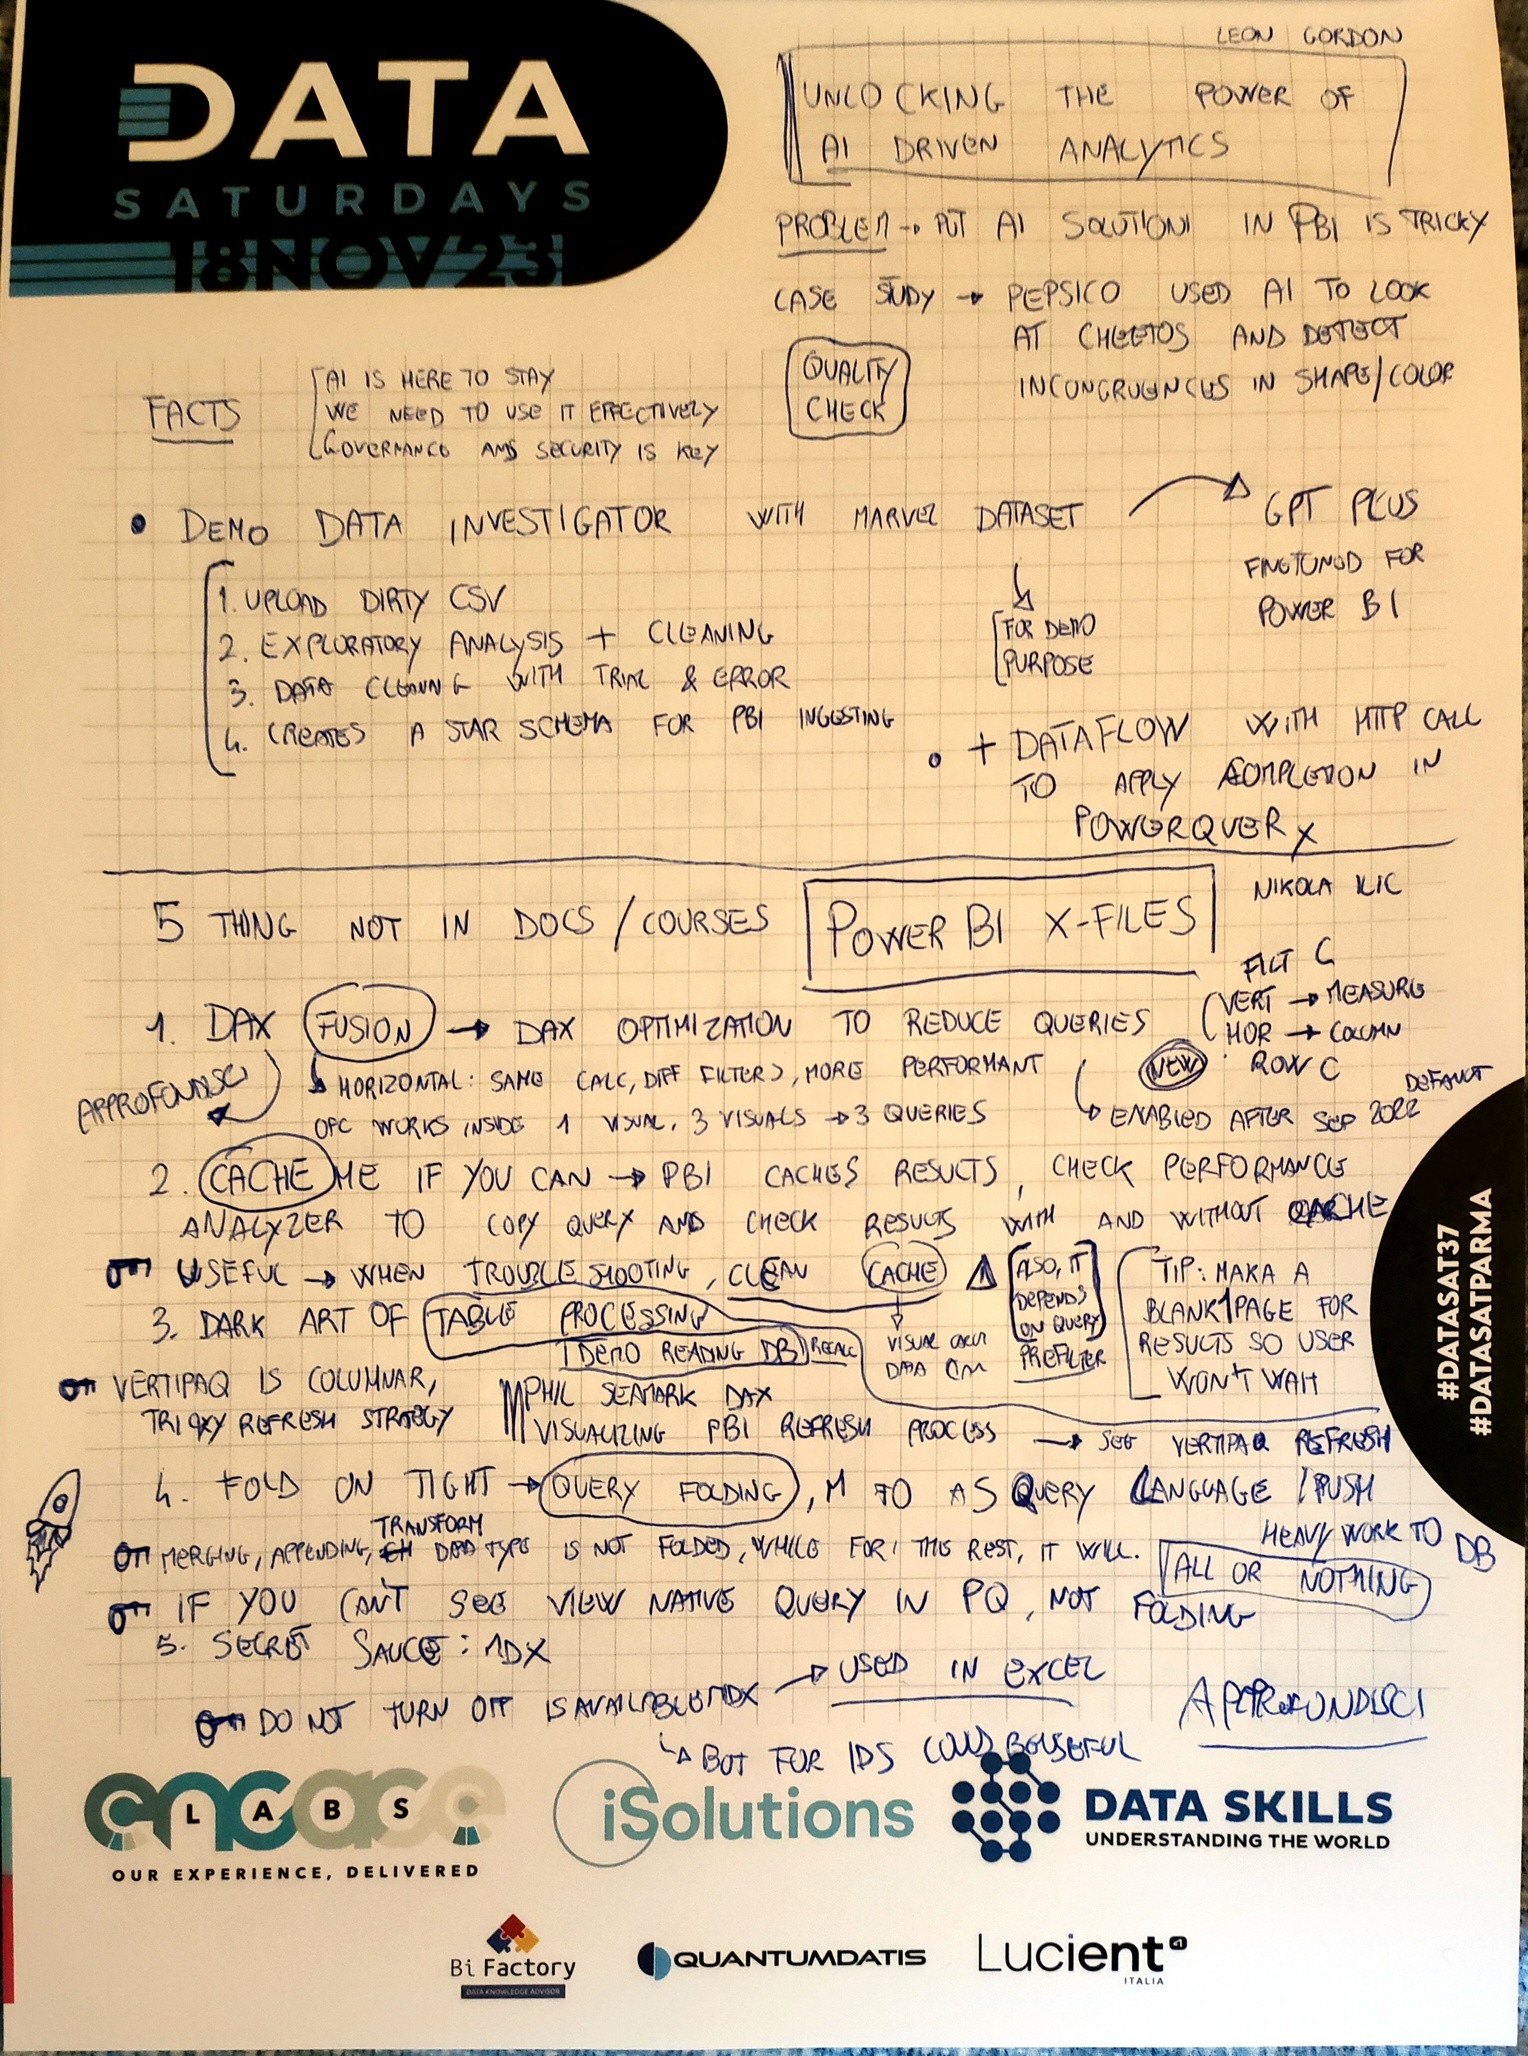 DATA
SATURDAYS
18NOV23
LEON GORDON
UNLOCKING THE POWER OF
AI DRIVEN ANALYTICS
PROBLEM → PUT AI SOLUTION IN PBI IS TRICKY
CASE STUDY → PEPSICO USED AI TO LOOK
AT CHEETOS AND DETECT
INCONGRUENCES IN SHAPE/COLOR
QUALITY
CHECK
FACTS
AI IS HERE TO STAY
WE NEED TO USE IT EFFECTIVELY
GOVERNANCE AND SECURITY IS KEY
• DEMO DATA INVESTIGATOR WITH MARVEL DATASET
GPT PLUS
FINETUNED FOR
POWER BI
FOR DEMO
PURPOSE
1. UPLOAD DIRTY CSV
2. EXPLORATORY ANALYSIS + CLEANING
3. DATA CLEANING WITH TRIAL & ERROR
4. CREATES A STAR SCHEMA FOR PBI INGESTING
• + DATAFLOW WITH HTTP CALL
TO APPLY COMPLETION IN
POWERQUERY
5 THING NOT IN DOCS/COURSES
POWER BI X-FILES
NIKOLA ILIC
1. DAX FUSION → DAX OPTIMIZATION TO REDUCE QUERIES
FILT C
VERT → MEASURE
HOR → COLUMN
ROW C
APPROFONDISCI
HORIZONTAL: SAME CALC, DIFF FILTERS, MORE PERFORMANT
NEW
OPC WORKS INSIDE 1 VISUAL. 3 VISUALS → 3 QUERIES
ENABLED AFTER SEP 2022
DEFAULT
2. CACHE ME IF YOU CAN → PBI CACHES RESULTS, CHECK PERFORMANCE
ANALYZER TO COPY QUERY AND CHECK RESULTS WITH AND WITHOUT CACHE
USEFUL → WHEN TROUBLESHOOTING, CLEAN CACHE
VISUAL
DATA
ALSO, IT
DEPENDS
ON QUERY
PREFILTER
TIP: MAKA A
BLANK 1 PAGE FOR
RESULTS SO USER
WON'T WAIT
3. DARK ART OF TABLE PROCESSING
DEMO READING DB RECALC
VERTIPAQ IS COLUMNAR,
TRICKY REFRESH STRATEGY
PHIL SEAMARK DAX
VISUALIZING PBI REFRESH PROCESS → SEE VERTIPAQ REFRESH
4. FOLD ON TIGHT → QUERY FOLDING, M TO AS QUERY LANGUAGE / PUSH
HEAVY WORK TO DB
TRANSFORM
MERGING, APPENDING, TYPE IS NOT FOLDED, WHILE FOR THE REST, IT WILL.
ALL OR NOTHING
IF YOU CAN'T SEE VIEW NATIVE QUERY IN PQ, NOT FOLDING
5. SECRET SAUCE: MDX
DO NOT TURN OFF ISAVAILABLEMDX → USED IN EXCEL
BUT FOR IDS COULD BE USEFUL
APPROFONDISCI
#DATASAT37
#DATASATPARMA
encase
LABS
OUR EXPERIENCE, DELIVERED
iSolutions
DATA SKILLS
UNDERSTANDING THE WORLD
Bi Factory
DATA KNOWLEDGE ADVISOR
QUANTUMDATIS
Lucient
ITALIA